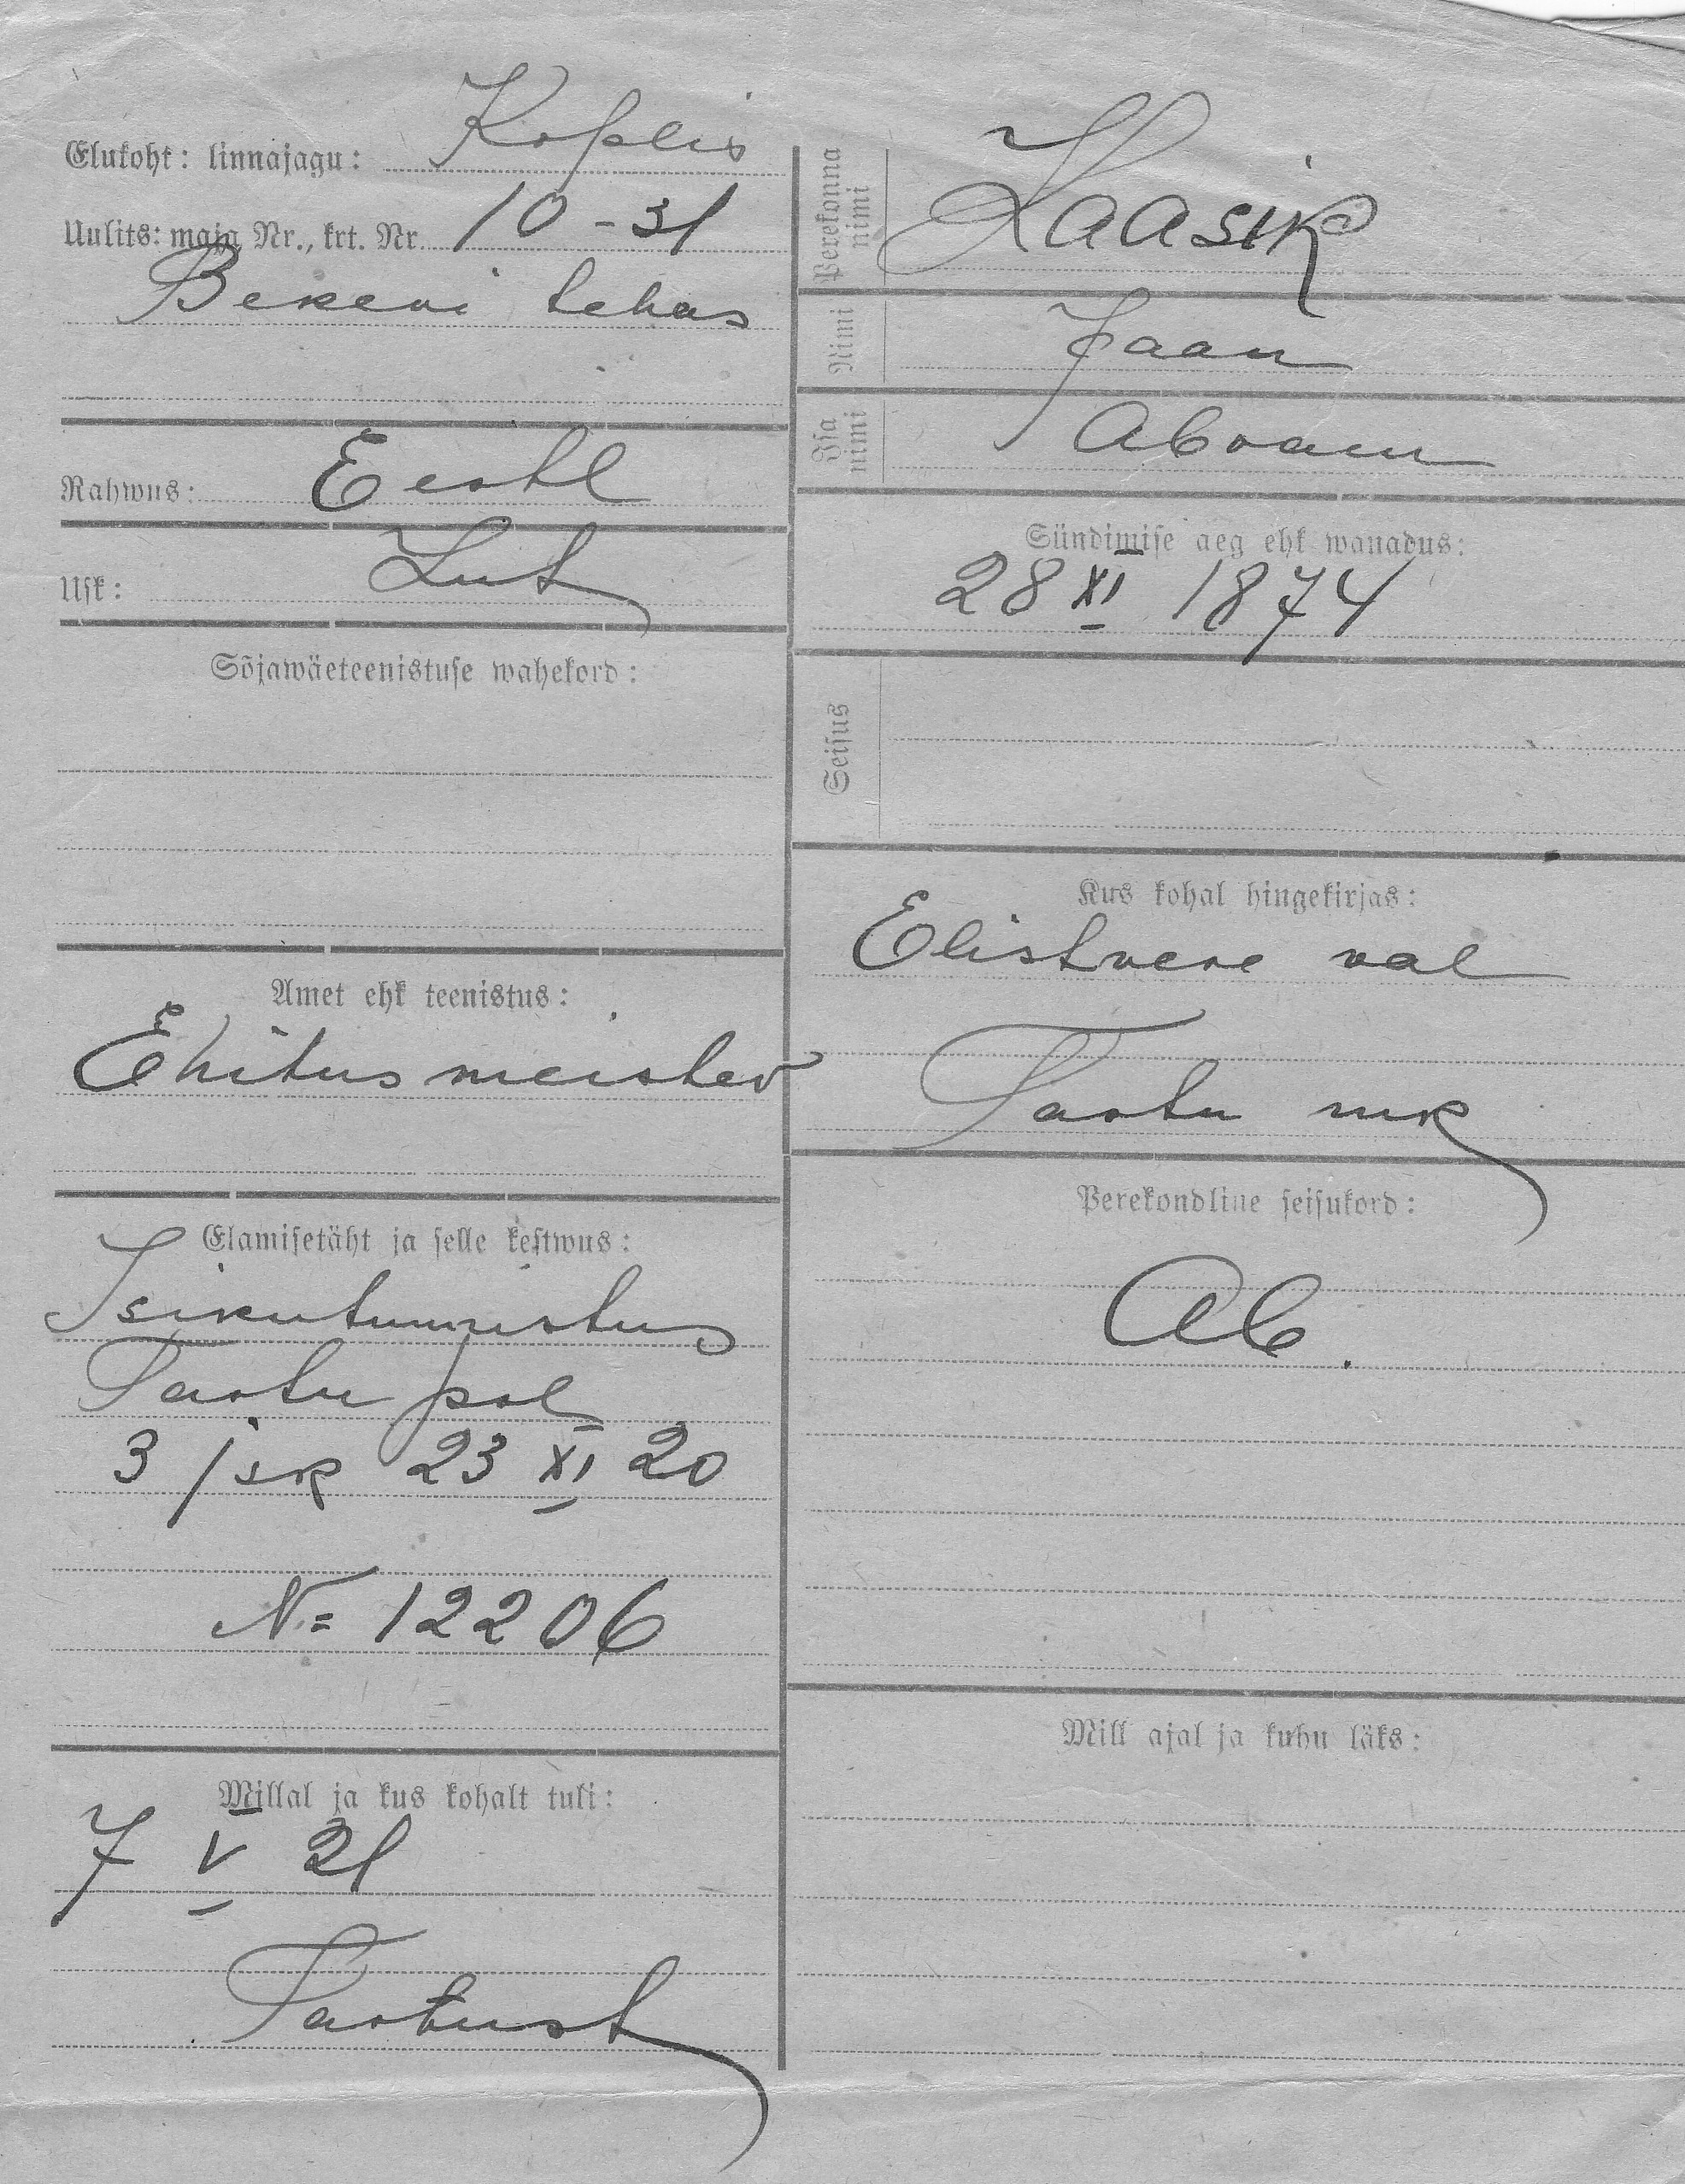 Elukoht: linnajagu: Koplis
Uulits: maja Nr., krt. Nr. 10-31
Bekeri tehas
Rahwus: Eestl
Usk: Lut
Sõjawäeteenistuse wahekord:
Amet ehk teenistus:
Ehitusmeister
Elamisetäht ja selle kestwus:
Isikutunnistus
Tartu pol
3 jsk 23 XI 20
№ 12206
Millal ja kus kohalt tuli:
7 V 21
Tartust
Perekonna nimi Kaasik
Nimi Jaan
Isa nimi Abram
Sündimise aeg ehk wanadus:
28 XI 1874
Seisus
Kus kohal hingekirjas:
Elistvere val
Tartu mk
Perekondline seisukord:
Ab.
Mill ajal ja kuhu läks: